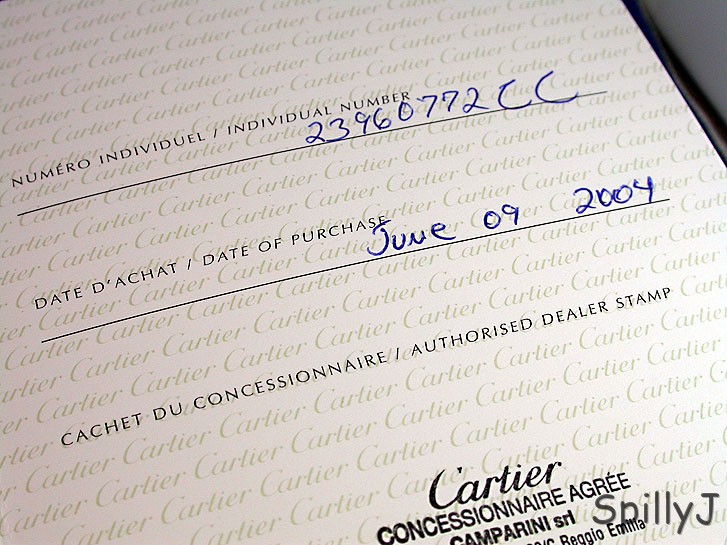 NUMÉRO INDIVIDUEL / INDIVIDUAL NUMBER 23960772CC
DATE D'ACHAT / DATE OF PURCHASE June 09 2004
CACHET DU CONCESSIONNAIRE / AUTHORISED DEALER STAMP
Cartier
CONCESSIONNAIRE AGRÉE
CAMPARINI srl
Reggio Emilia
SpillyJ